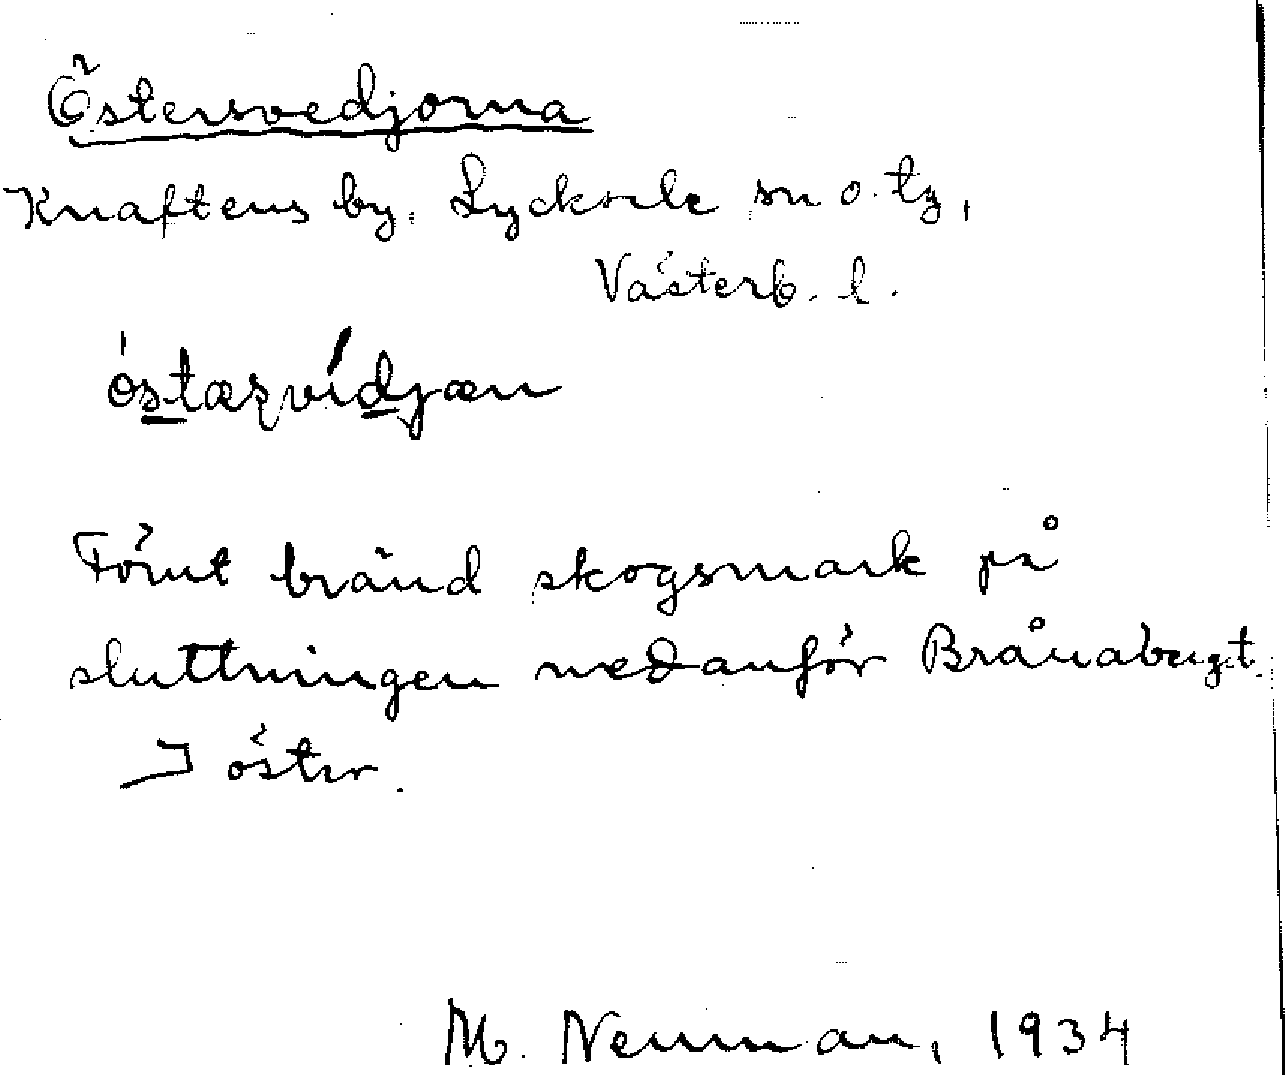 Östersvedjorna
Knaftens by, Lycksele sn o. tg,
Västerb. l.
östæṣvidjæn
Förut bränd skogsmark på
sluttningen nedanför Brånaberget.
I öster.
M. Neuman, 1934